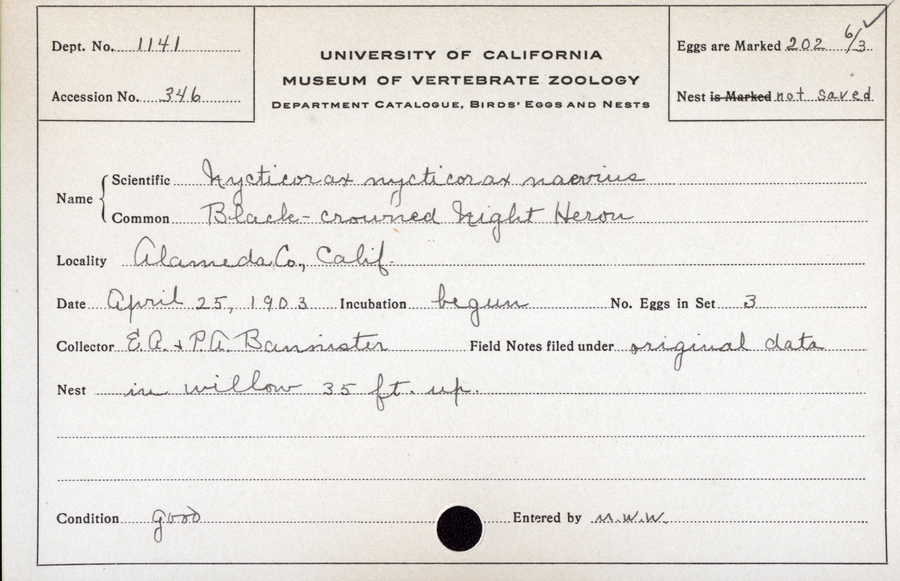 Dept. No. 1141
Accession No. 346
UNIVERSITY OF CALIFORNIA
MUSEUM OF VERTEBRATE ZOOLOGY
DEPARTMENT CATALOGUE, BIRDS' EGGS AND NESTS
Eggs are Marked 202 6/3
Nest is Marked not saved
Name
Scientific Nycticorax nycticorax naevius
Common Black-crowned Night Heron
Locality Alameda Co., Calif.
Date April 25, 1903 Incubation begun No. Eggs in Set 3
Collector E.A. + P.A. Bannister Field Notes filed under original data
Nest in willow 35 ft. up.
Condition good Entered by M.W.W.